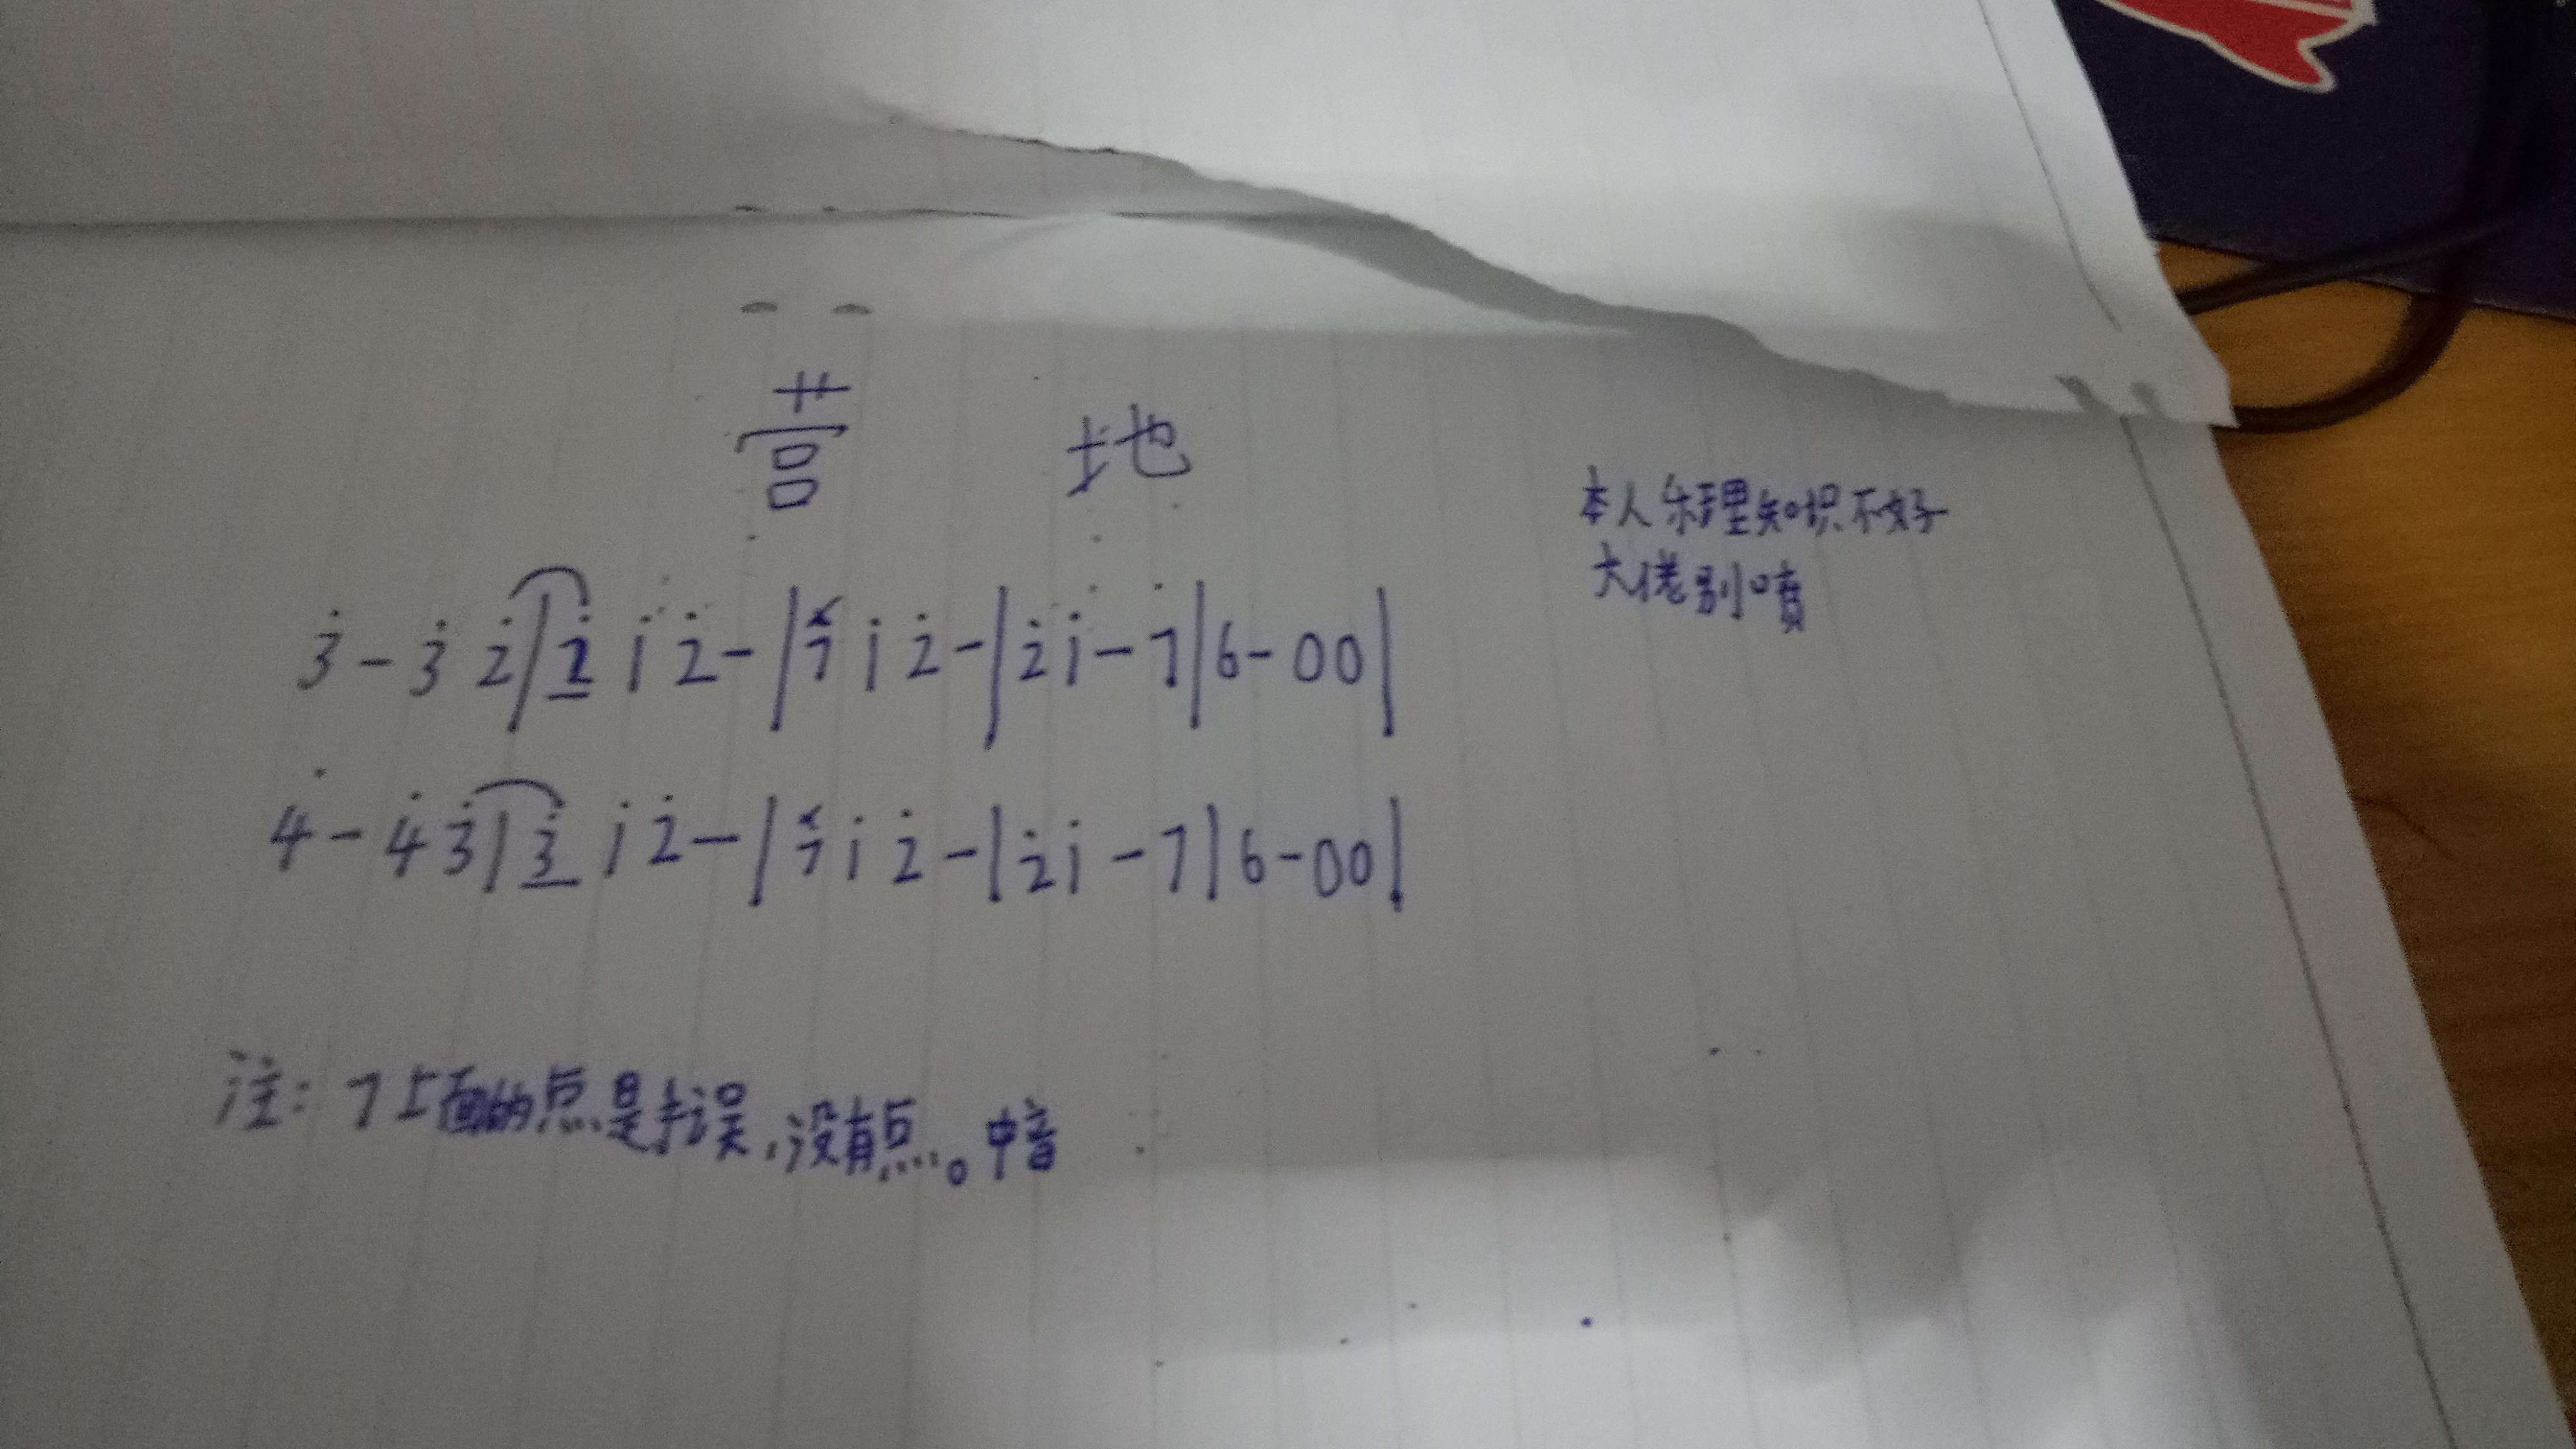 营 地
本人乐理知识不好
大佬别喷
3̇ - 3̇ 2̇ | 2̲̇ 1̇ 2̇ - | 7̇ 1̇ 2̇ - | 2̇ 1̇ - 7̇ | 6 - 0 0 |
4̇ - 4̇ 3̇ | 3̲̇ 1̇ 2̇ - | 7̇ 1̇ 2̇ - | 2̇ 1̇ - 7 | 6 - 0 0 |
注：7上面的点是手误，没有点。中音